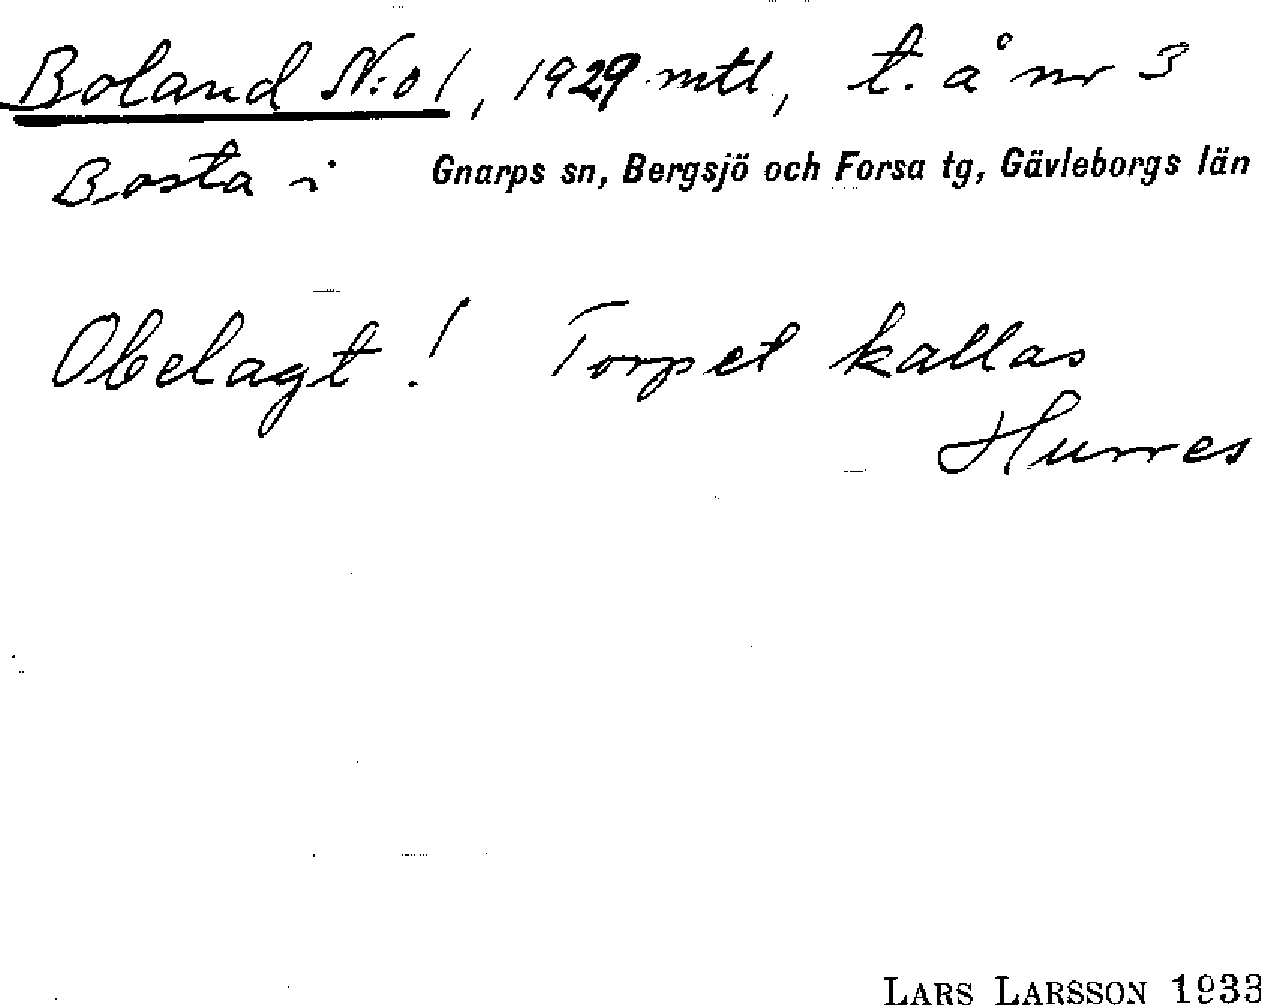 Boland N:o 1, 1929 mtl, t. å nr 3
Bosta i Gnarps sn, Bergsjö och Forsa tg, Gävleborgs län
Obelagt! Torpet kallas
Hurres
LARS LARSSON 1933